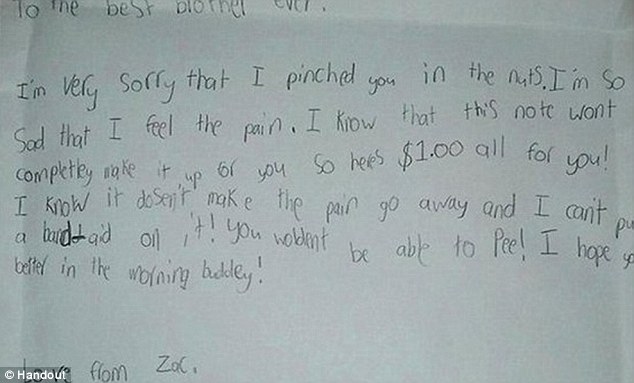 To the best brother ever.
I'm very sorry that I pinched you in the nuts. I'm so
Sad that I feel the pain. I know that this note wont
completley make it up for you so heres $1.00 all for you!
I know it dosen't make the pain go away and I can't pu
a band-aid on it! You woldent be able to Pee! I hope yo
better in the morning buddey!
Love from Zac.
© Handout